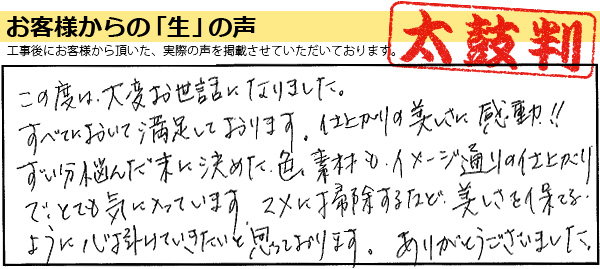 お客様からの「生」の声
工事後にお客様から頂いた、実際の声を掲載させていただいております。
太鼓判
この度は、大変お世話になりました。
すべてにおいて満足しております。仕上がりの美しさに感動!!
ずい分悩んだ末に決めた、色、素材も、イメージ通りの仕上がり
で、とても気に入っています。マメに掃除するなど、美しさを保てる
ように心掛けていきたいと思っております。ありがとうございました。